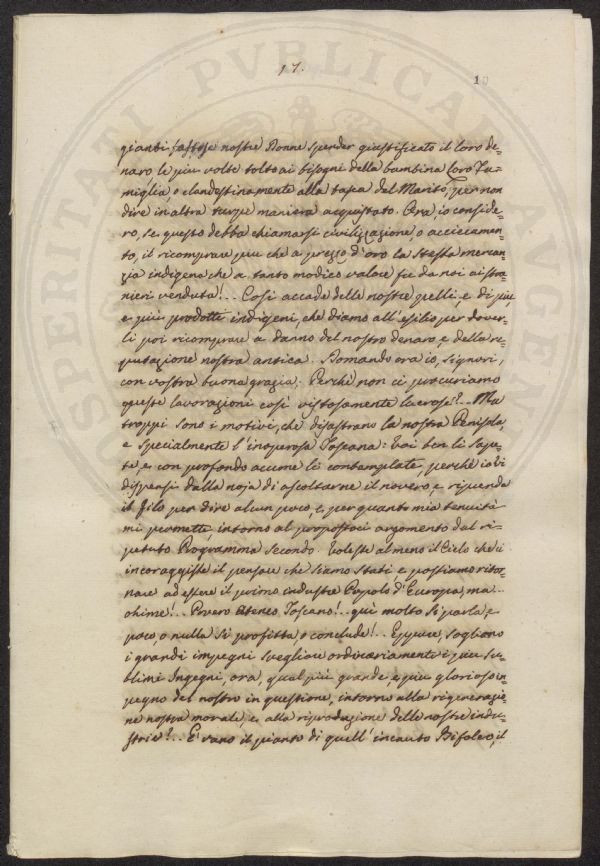 17.
10
gianti fastose nostre Donne spender giustificato il loro de=
naro, le più volte tolto ai bisogni della bambina loro Fa=
miglia, o clandestinamente alla tasca del Marito, per non
dire in altra turpe maniera acquistato. Ora, io conside=
ro, se questo debba chiamarsi civilizzazione, o acciecamen=
to, il ricomprare più che a prezzo d'oro la stessa mercan=
zia indigena che a tanto modico valore fu da noi ai stra=
nieri venduta!... Così accade delle nostre pelli, e di più
e più prodotti indigeni, che diamo all'esilio per dover=
li poi ricomprare a danno del nostro denaro, e della re=
putazione nostra antica. Domando ora io, Signori,
con vostra buona grazia; Perchè non ci procuriamo
queste lavorazioni così vistosamente lucrose?... Ma
troppi sono i motivi, che disastrano la nostra Penisola,
e specialmente l'inoperosa Toscana: Voi ben li sape=
te, e con profondo acume li contemplate, perchè io vi
dispensi dalla noja di ascoltarne il novero, e riprenda
il filo per dire alcun poco, e per quanto mia tenuità
mi permette, intorno al propostoci argomento dal ri=
petuto Programma Secondo. Volesse almeno il Cielo che ci
incoraggisse il pensare che siamo stati e possiamo ritor=
nare ad essere il primo industre Popolo d'Europa, ma..
ohime!... Povero Ateneo Toscano!.. quì molto si parla, e
poco, o nulla si profitta, o conclude!.. Eppure, sogliono
i grandi impegni svegliare ordinariamente i più su=
blimi Ingegni, ora, qual più grande, e più glorioso im=
pegno del nostro in questione, intorno alla rigenerazio=
ne nostra morale, e alla riproduzione delle nostre indu=
strie?... È vano il pianto di quell'incauto Bifolco, il
PVBLICAE